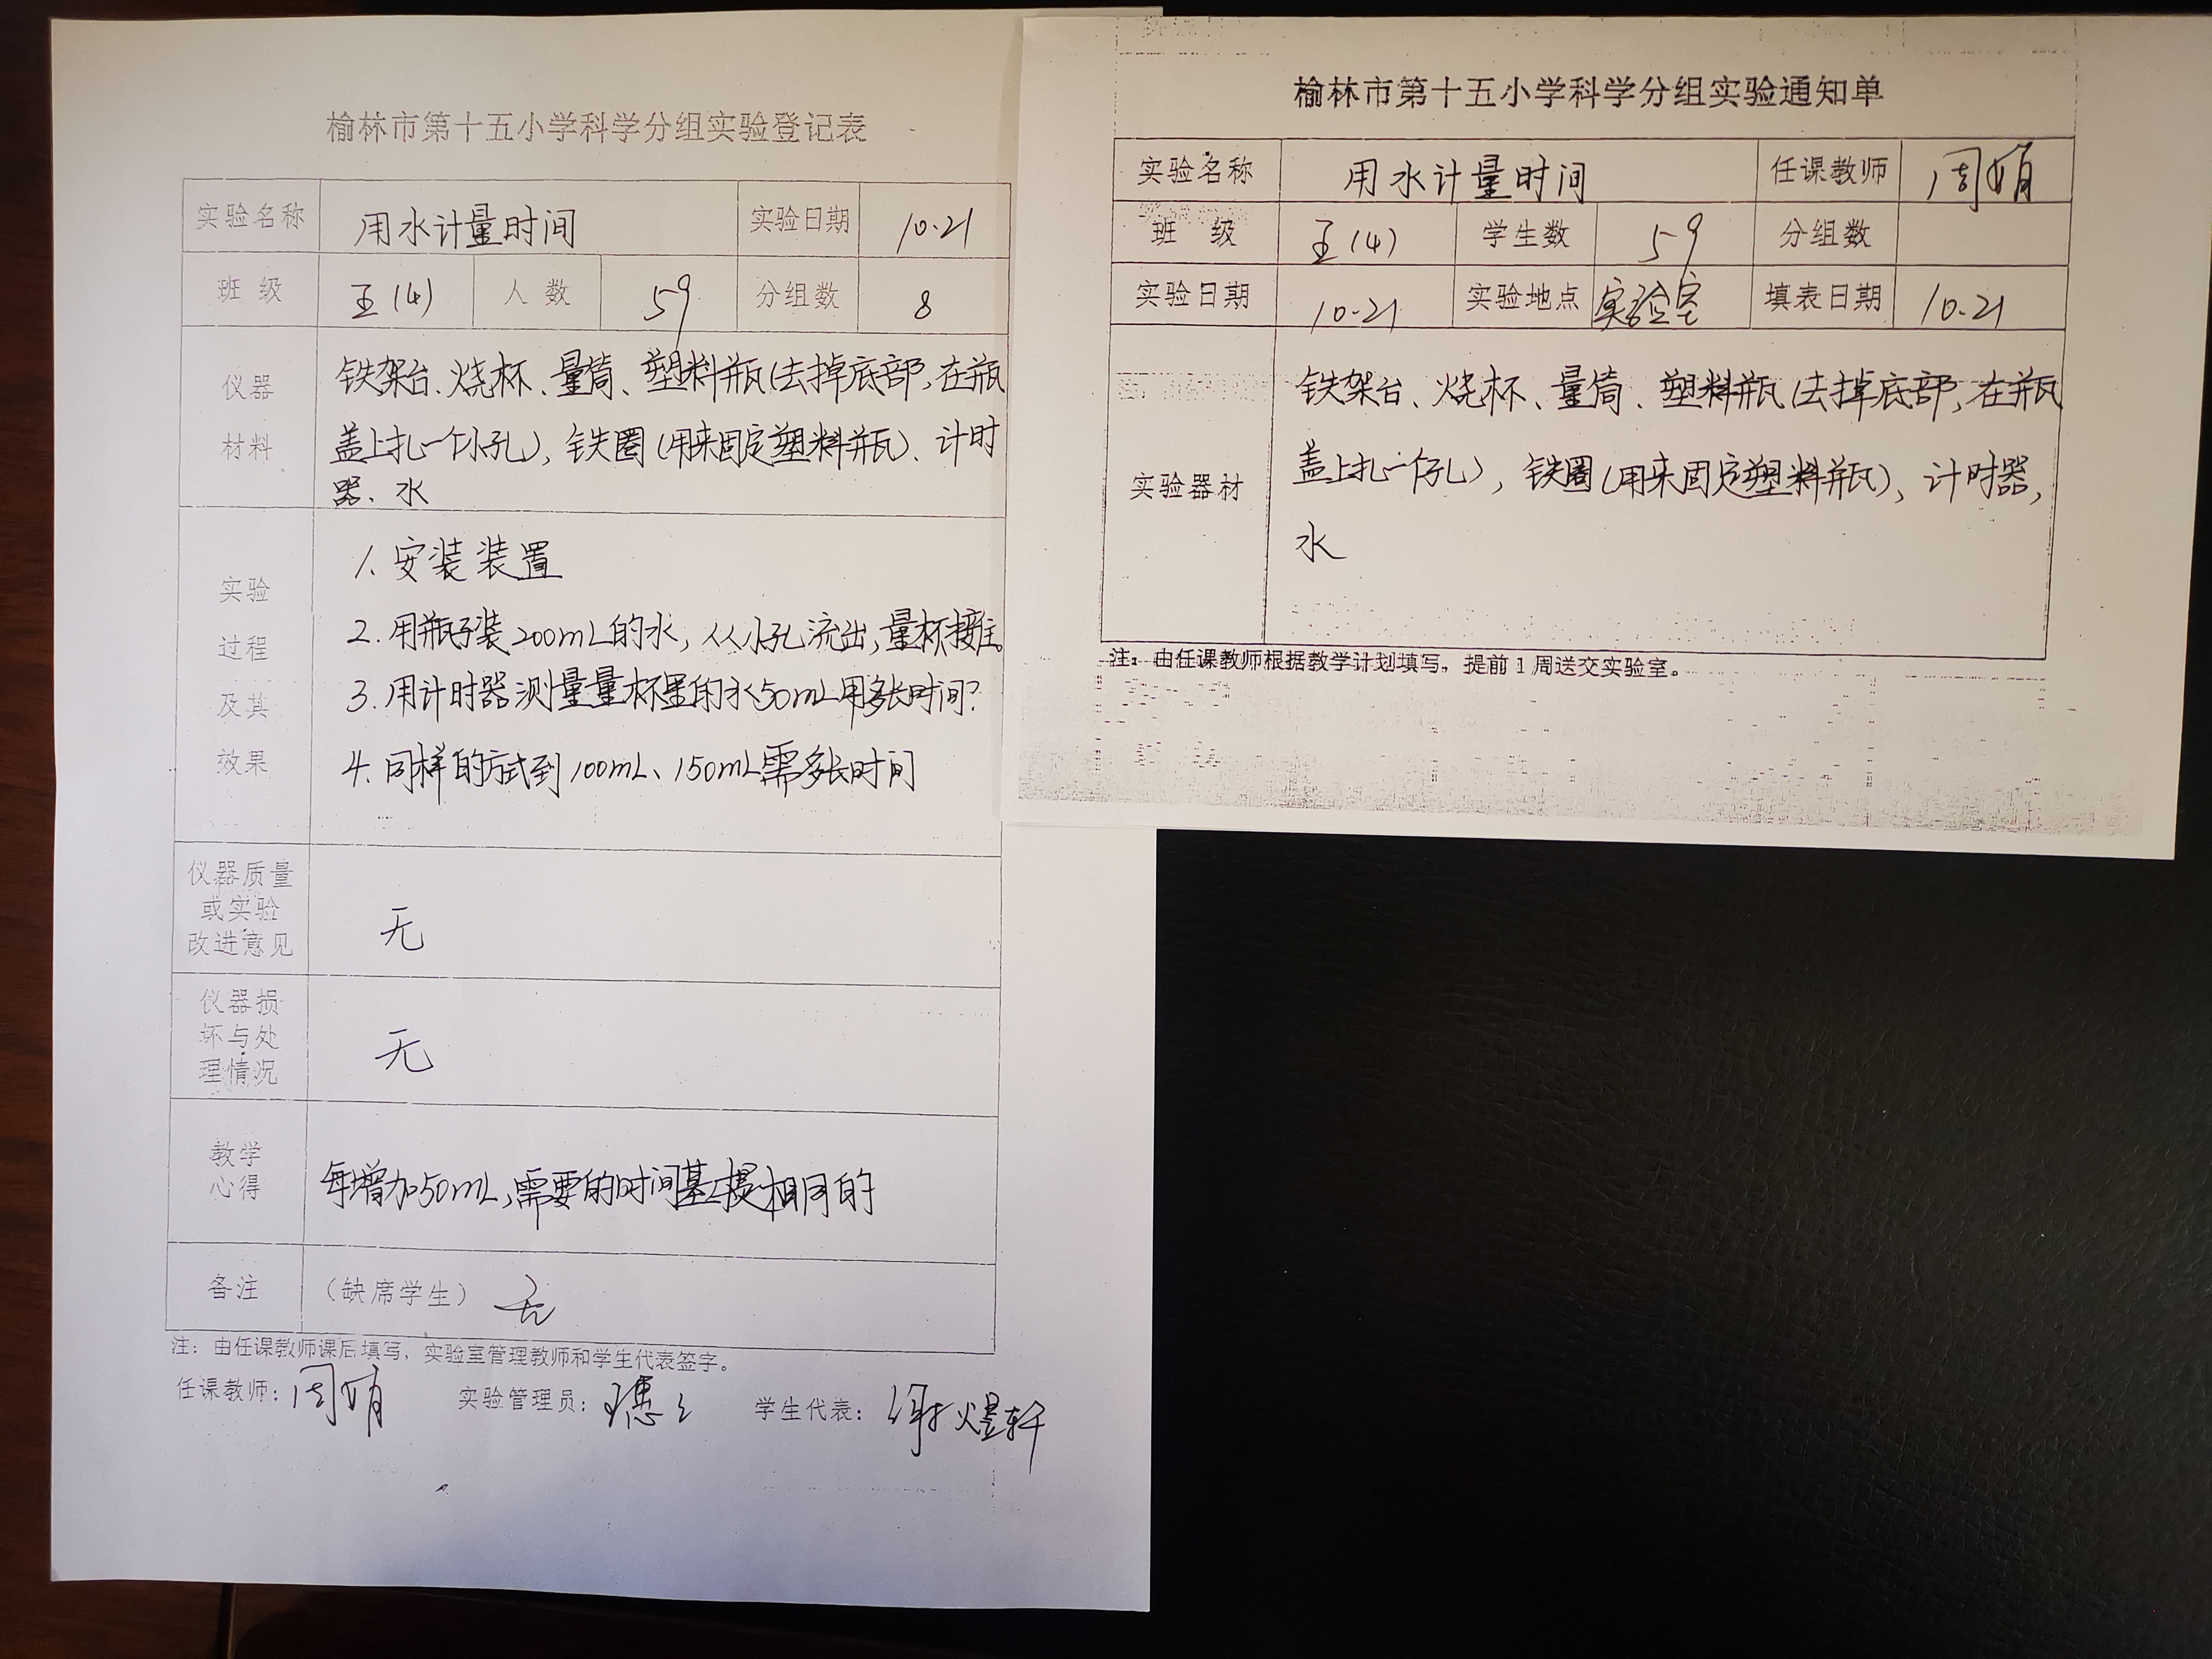 榆林市第十五小学科学分组实验登记表
实验名称 用水计量时间 实验日期 10.21
班 级 五(4) 人 数 59 分组数 8
仪器
材料
铁架台、烧杯、量筒、塑料瓶(去掉底部,在瓶
盖上扎一个小孔),铁圈(用来固定塑料瓶)、计时
器、水
实验
过程
及其
效果
1.安装装置
2.用瓶子装200mL的水,从小孔流出,量杯接住。
3.用计时器测量量杯里的水50mL用多长时间?
4.同样的方式到100mL、150mL需多长时间
仪器质量
或实验
改进意见
无
仪器损
坏与处
理情况
无
教学
心得
每增加50mL,需要的时间基本是相同的
备注 (缺席学生) 无
注:由任课教师课后填写,实验室管理教师和学生代表签字。
任课教师:周娟 实验管理员: 学生代表:谢煜轩
榆林市第十五小学科学分组实验通知单
实验名称 用水计量时间 任课教师 周娟
班 级 五(4) 学生数 59 分组数
实验日期 10.21 实验地点 实验室 填表日期 10.21
实验器材
铁架台、烧杯、量筒、塑料瓶(去掉底部,在瓶
盖上扎一个孔),铁圈(用来固定塑料瓶)、计时器,
水
注:由任课教师根据教学计划填写,提前1周送交实验室。